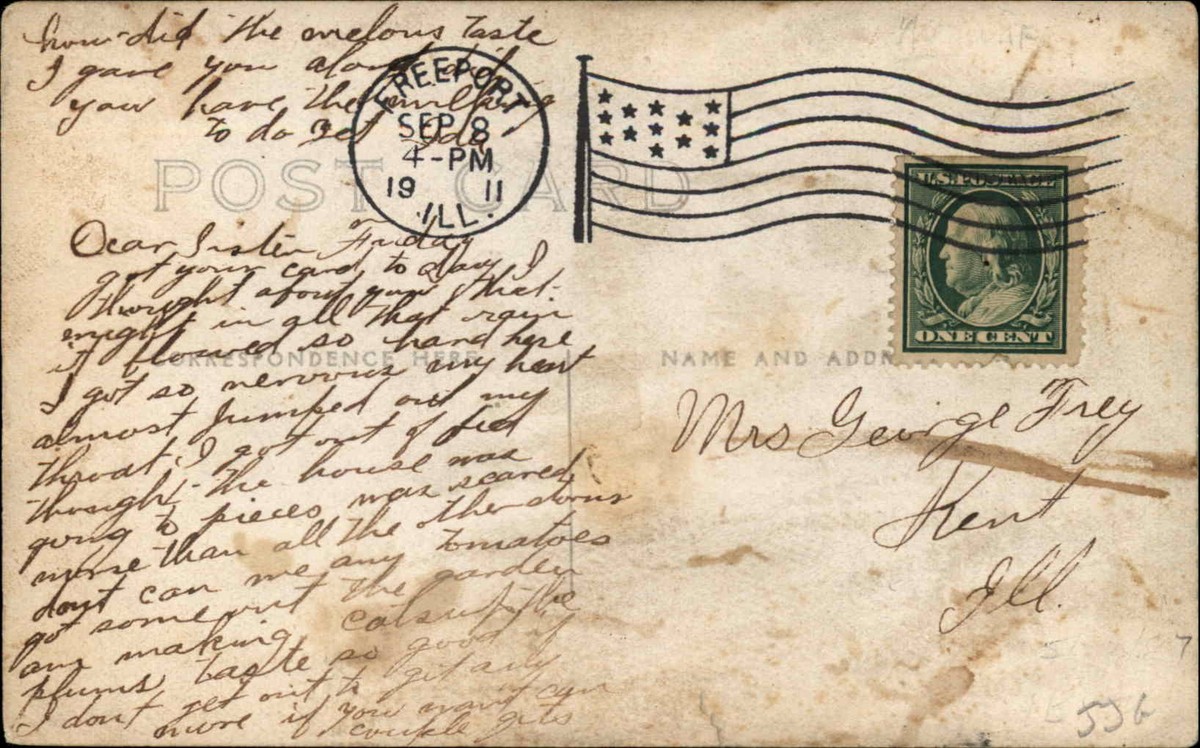 how did the melons taste
I gave you along did
you have the milking
to do yet Ida
POST CARD
FREEPORT
SEP 8
4-PM
19 11
ILL.
U.S. POSTAGE
ONE CENT
Dear Sister Friday
got your card to day I
thought about you that
night in all that rain
it blowed so hard here
CORRESPONDENCE HERE
NAME AND ADDR
I got so nervous my heart
almost jumped out my
throat, I got out of bed
thought the house was
going to pieces was scared
worse than all the other
dont can me any tomatoes
got some out the garden
am making catsup the
plums taste so good if
I dont get out to git any
more if you want can
couple qts
Mrs George Frey
Kent
Ill.
556